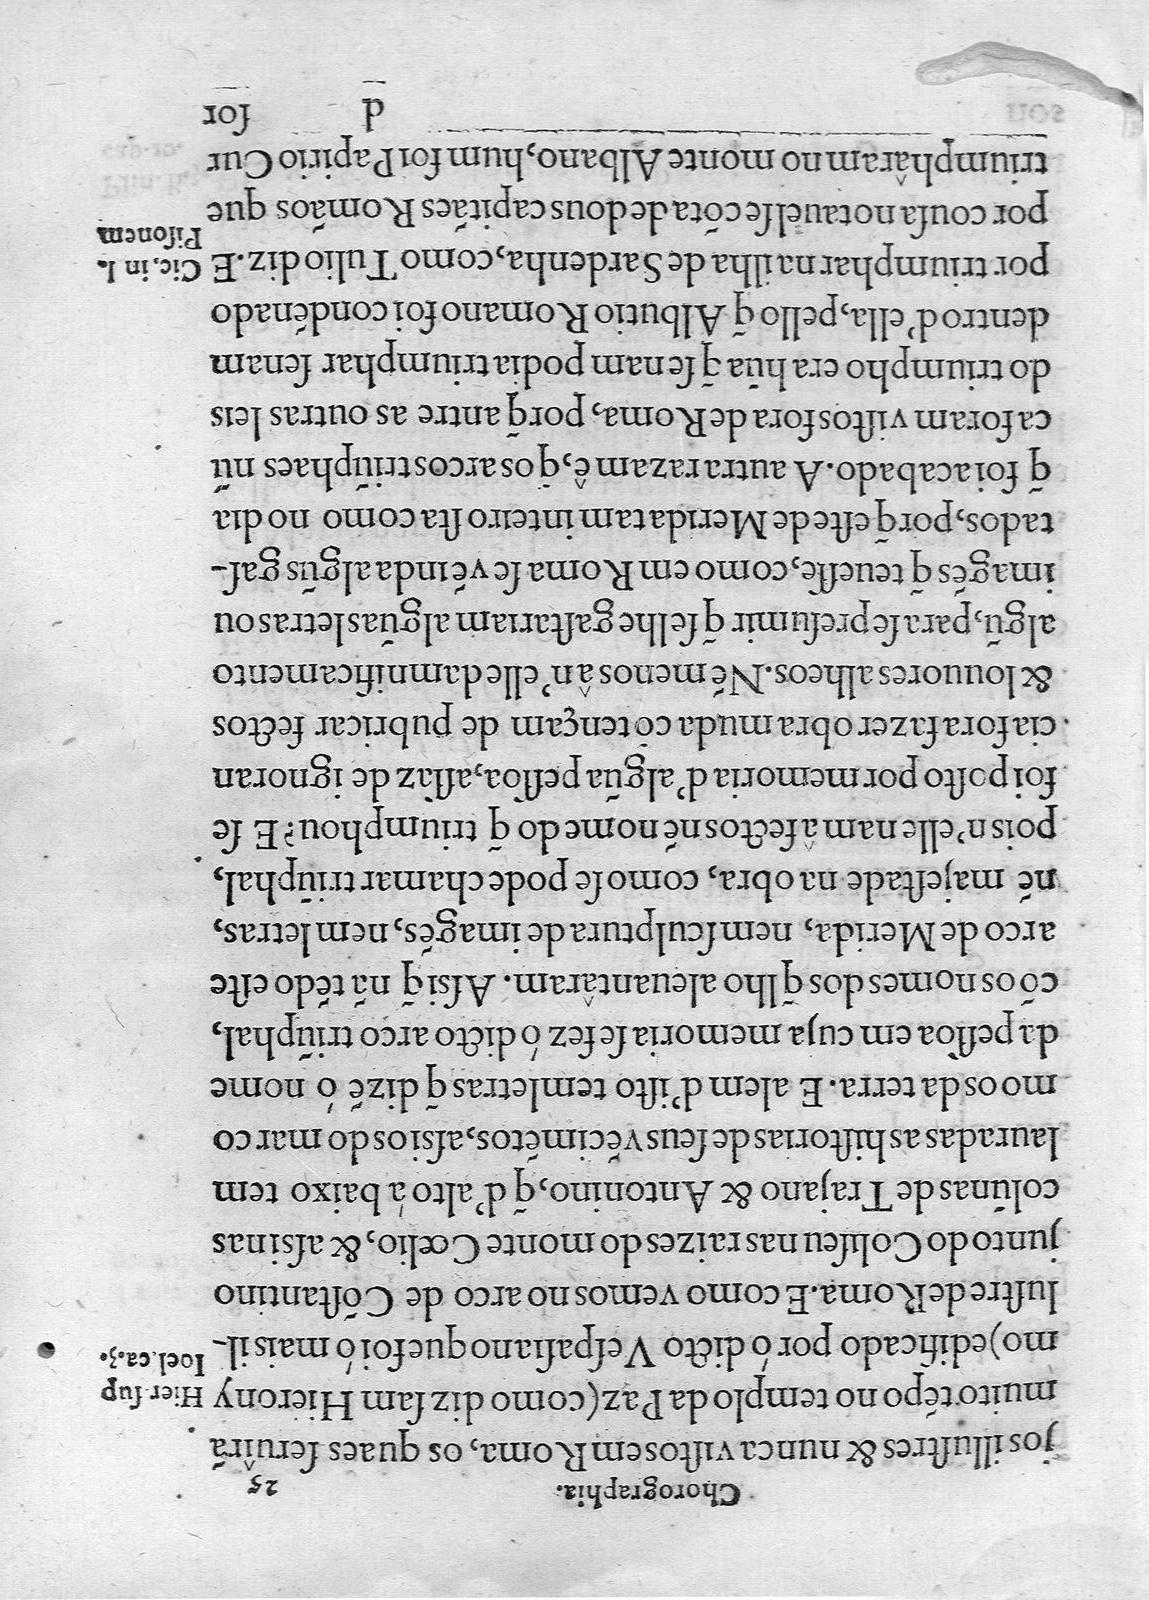 Chorographia. 25
jos illustres & nunca vistos em Roma, os quaes serúirã
muito tẽpo no templo da Paz (como diz sam Hierony
mo) edificado por ó dicto Vespasiano que foi ó mais il-
lustre de Roma. E como vemos no arco de Cõstantino
junto do Coliseu nas raizes do monte Cœlio, & assi nas
colũnas de Trajano & Antonino, q̃ d'alto á baixo tem
lauradas as historias de seus vẽcimẽtos, assi os do mar co
mo os da terra. E alem d'isto tem letras q̃ dizẽ ó nome
da pessoa em cuja memoria se fez ó dicto arco triũphal,
cõ os nomes dos q̃ lho aleuantâram. Assi q̃ nã tẽdo este
arco de Merida, nem sculptura de imagẽs, nem letras,
nẽ majestade na obra, como se pode chamar triũphal,
pois n'elle nam â fectos nẽ nome do q̃ triumphou? E se
foi posto por memoria d'algũa pessoa, assaz de ignoran
cia fora fazer obra muda cõ tençam de pubricar fectos
& louuores alheos. Nẽ menos ân'elle damnificamento
algũ, para se presumir q̃ se lhe gastariam algũas letras ou
imagẽs q̃ teuesse, como em Roma se vẽ inda algũs gas-
tados, porq̃ este de Merida tam inteiro sta como no dia
q̃ foi acabado. A autra razam ê, q̃ os arcos triũphaes nũ
ca foram vistos fora de Roma, porq̃ antre as outras leis
do triumpho era hũa q̃ se nam podia triumphar se nam
dentro d'ella, pello q̃ Albutio Romano foi condẽnado
por triumphar na ilha de Sardenha, como Tulio diz. E
por cousa notauel se cõta de dous capitães Romãos que
triumphâram no monte Albano, hum foi Papirio Cur
d sor
Hier. sup
Ioel. ca. 3.
Cic, in l.
Pisonem